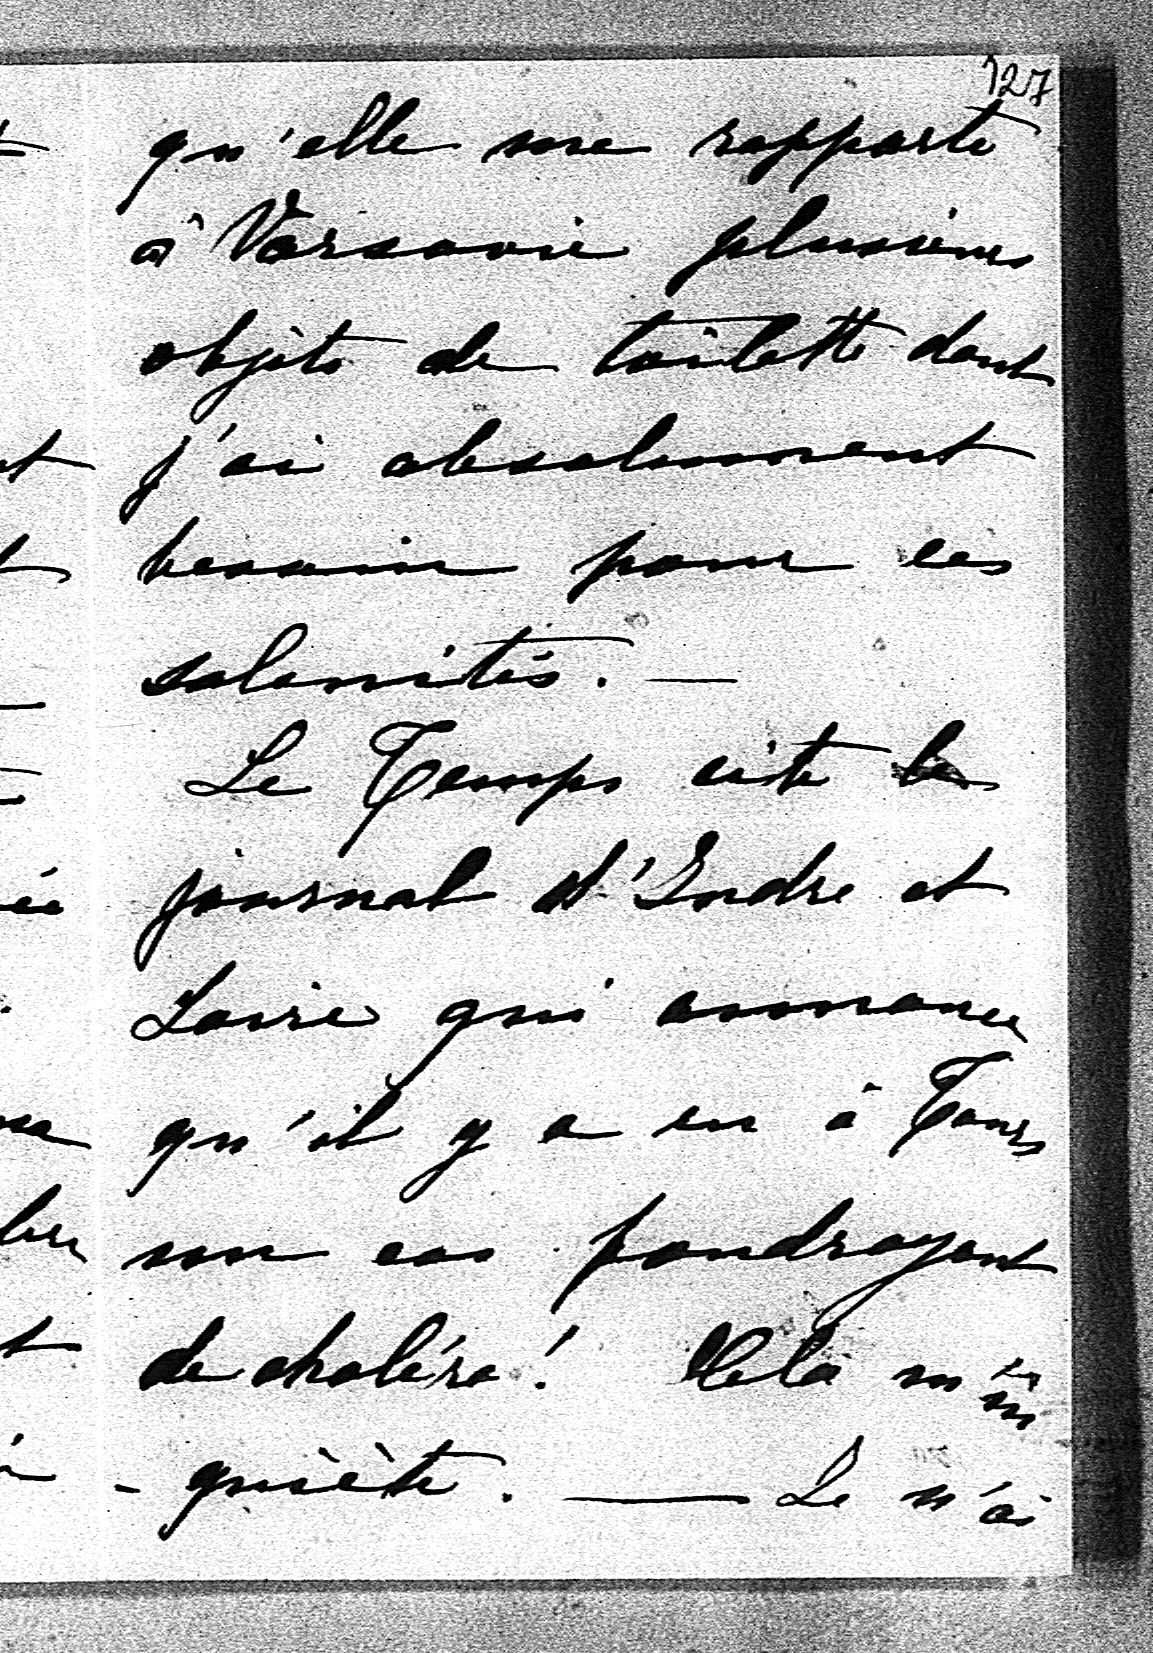 127
qu'elle me rapporte
à Varsovie plusieurs
objets de toilette dont
j'ai absolument
besoin pour ces
calamités. —
Le Temps cite le
journal d'Indre et
Loire qui annonce
qu'il y a eu à Tours
un cas foudroyant
de choléra! Cela m'in
- quiète. — Je n'ai